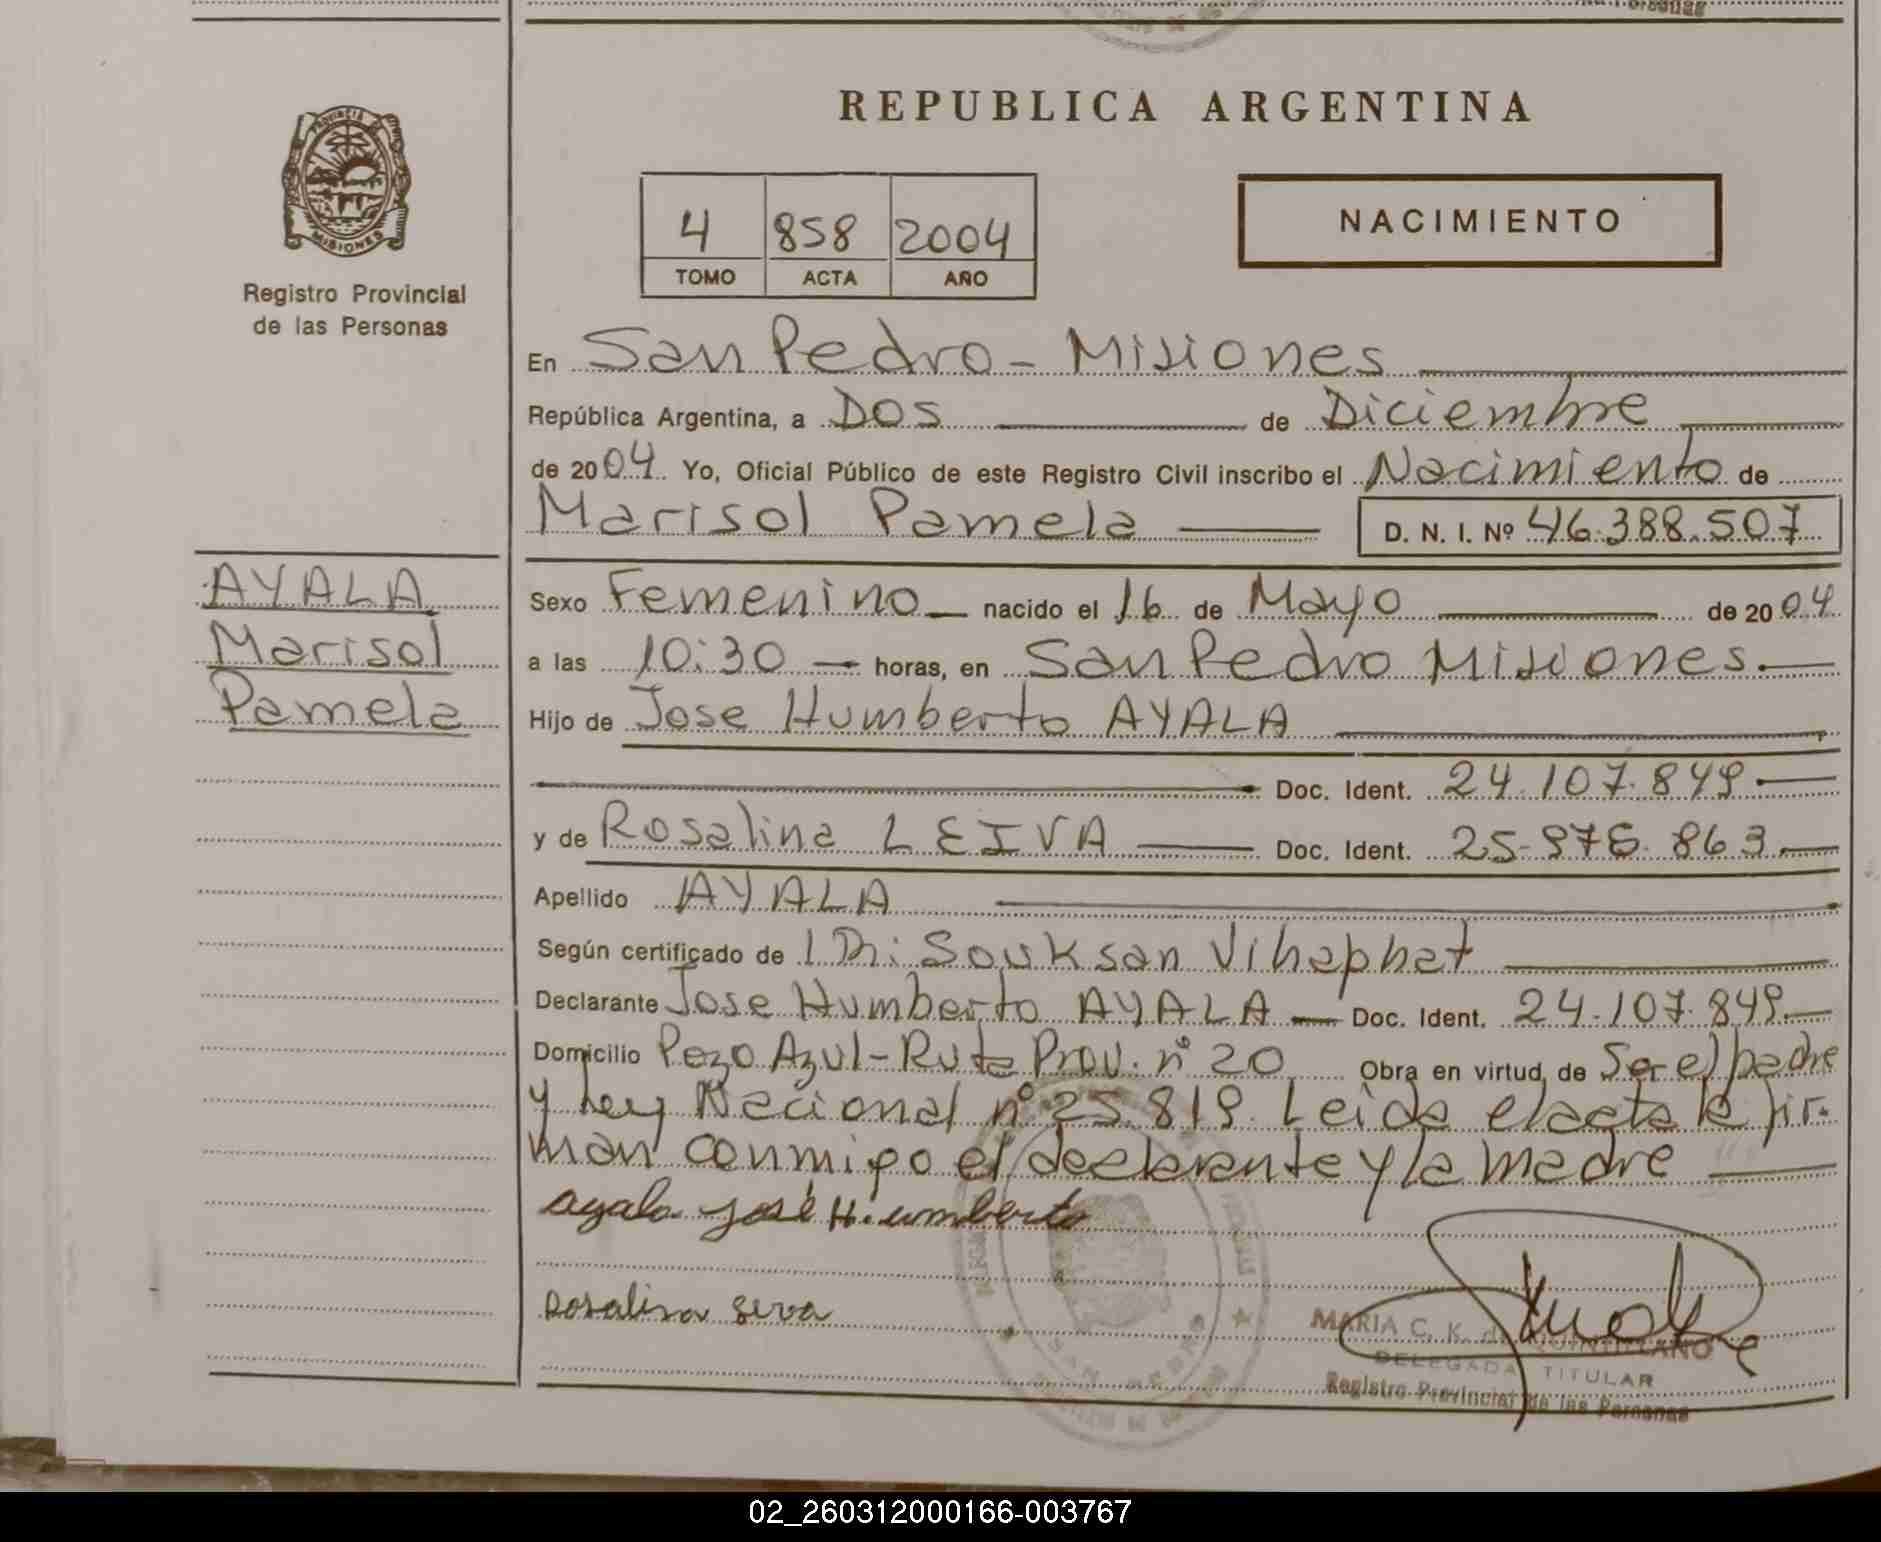 REPUBLICA ARGENTINA
PROVINCIA DE
MISIONES
Registro Provincial
de las Personas
4 858 2004
TOMO ACTA AÑO
NACIMIENTO
En San Pedro - Misiones
República Argentina, a Dos de Diciembre
de 2004. Yo, Oficial Público de este Registro Civil inscribo el Nacimiento de
Marisol Pamela D. N. I. Nº 46.388.507
AYALA
Marisol
Pamela
Sexo Femenino nacido el 16 de Mayo de 2004
a las 10:30 horas, en San Pedro Misiones.
Hijo de Jose Humberto AYALA
Doc. Ident. 24.107.849
y de Rosalina LEIVA Doc. Ident. 25.976.863
Apellido AYALA
Según certificado de Souksan Vihaphat
Declarante Jose Humberto AYALA Doc. Ident. 24.107.849
Domicilio Pozo Azul - Ruta Prov. nº 20 Obra en virtud de Ser el padre
y Ley Nacional nº 25.819. Leida el acta la fir-
man conmigo el declarante y la madre
ayala josé Humberto
Rosalina
MARIA C. K. de QUINTILIANO
DELEGADA TITULAR
Registro Provincial de las Personas
SAN PEDRO
02_260312000166-003767